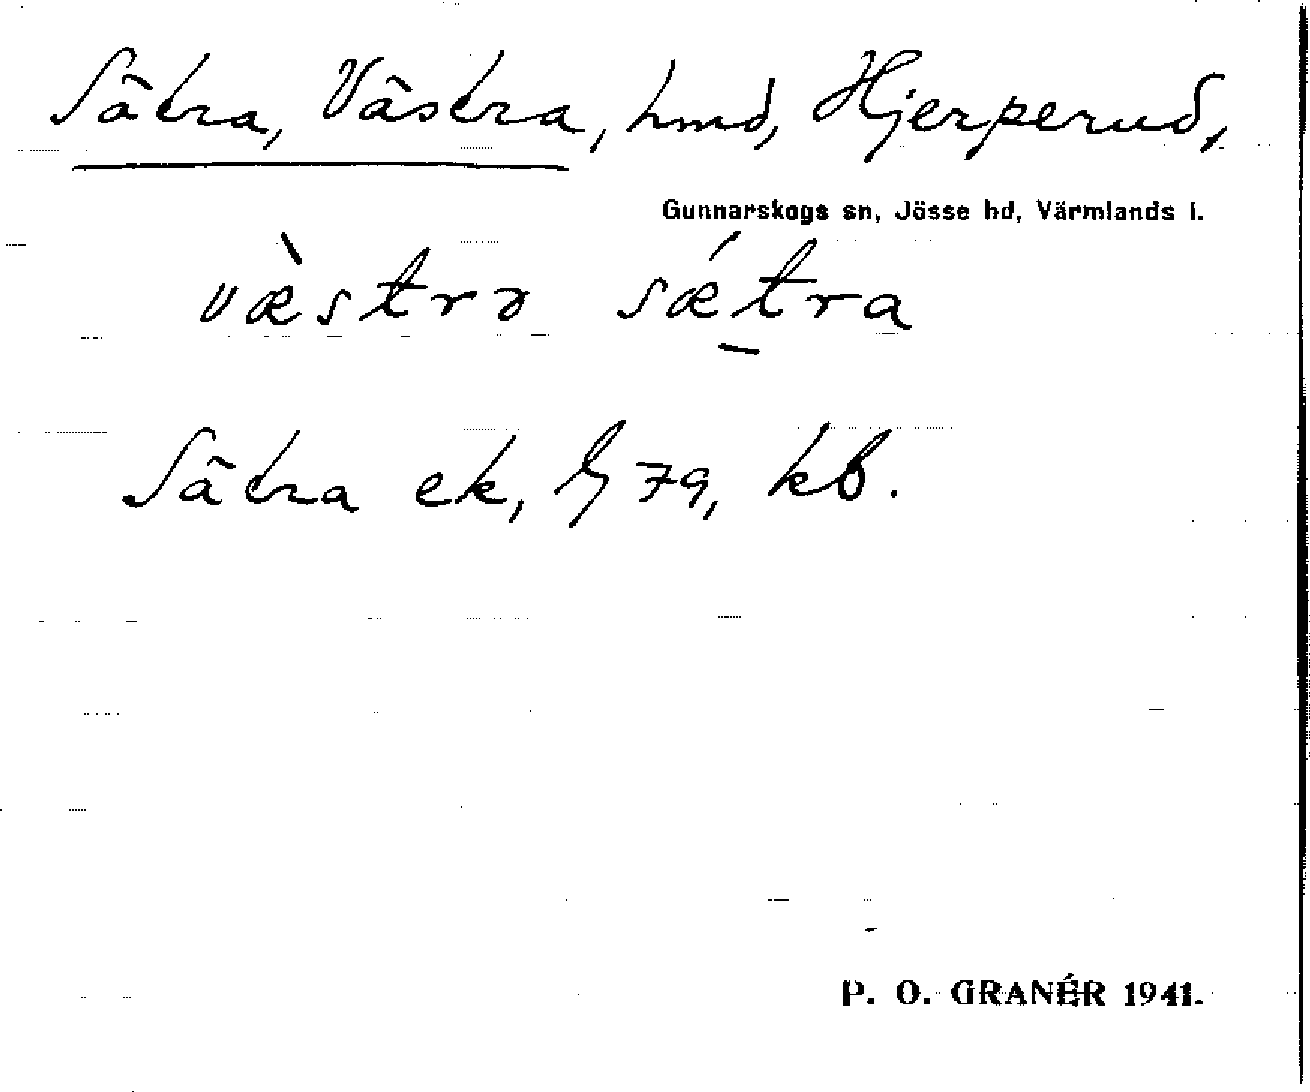 Sätra, Västra, hmd, Hjerperud,
Gunnarskogs sn, Jösse hd, Värmlands l.
væ̀strə sǽt̠ra
Sätra ek, 79, kb.
P. O. GRANÉR 1941.